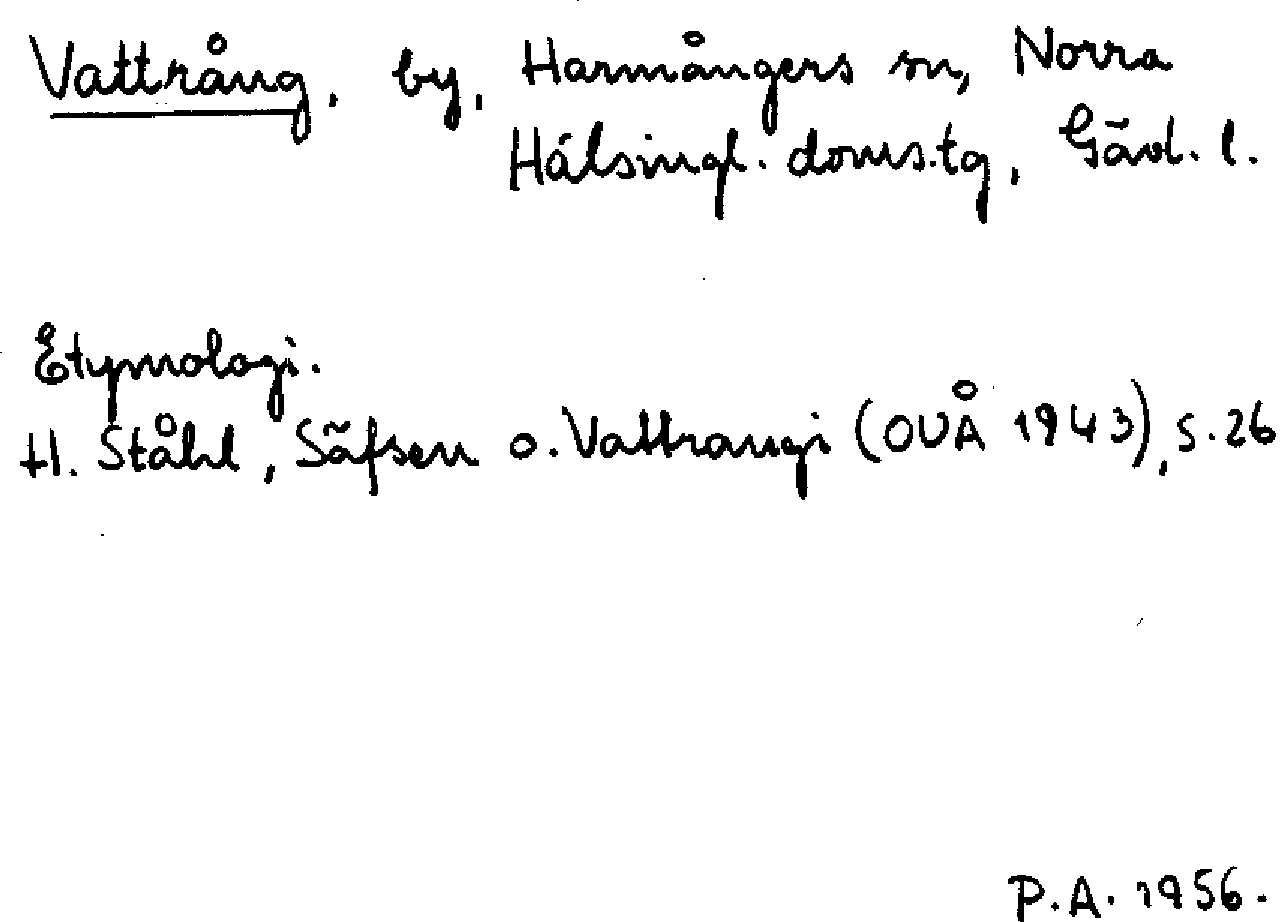 Vattrång, by, Harmångers sn, Norra
Hälsingl. doms.tg, Gävl. l.
Etymologi.
H. Ståhl, Säfsen o. Vattrangi (OUÅ 1943), s. 26
P.A. 1956.